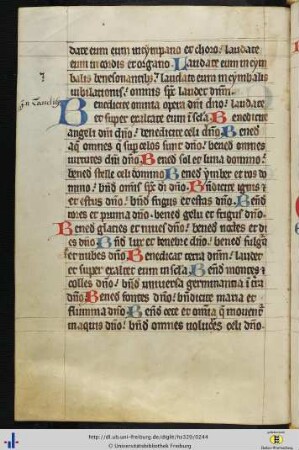 date eum eum in cympano et choro! laudate
eum in cordis et organo. Laudate eum in cym
balis benesonantibus! laudate eum in cymbalis
iubilationis! omnis spc laudet dnm.
Benedicite omnia opera dni dno! laudate
et super exaltate eum i scla Benedicite
angeli dni dno! benedicite celi dno Bened
aq omnes q sup celos sunt dno! bened omnes
uirtutes dni dno Bened sol et luna domino!
bened stelle celi domino Bened ymber et ros do
mino! bnd omis spc di dno. Bndicite ignis
et estus dno! bnd frigus et estas dno. Bend
rores et pruina dno! bened gelu et frigus dno
Bened glacies et niues dno! bened noctes et di
es dno Bnd lux et tenebre dno! bened fulga
et nubes dno Benedicat terra dnm! laudet
et super exaltet eum in scla Bend montes
colles dno! bnd uniuersa germinantia i tra
dno Bened fontes dno! bndicite maria et
flumina dno Bend cete et omia q mouent
in aquis dno! bnd omnes uolucres celi dno
http://dl.ub.uni-freiburg.de/diglit/hs320/0244
© Universitätsbibliothek Freiburg